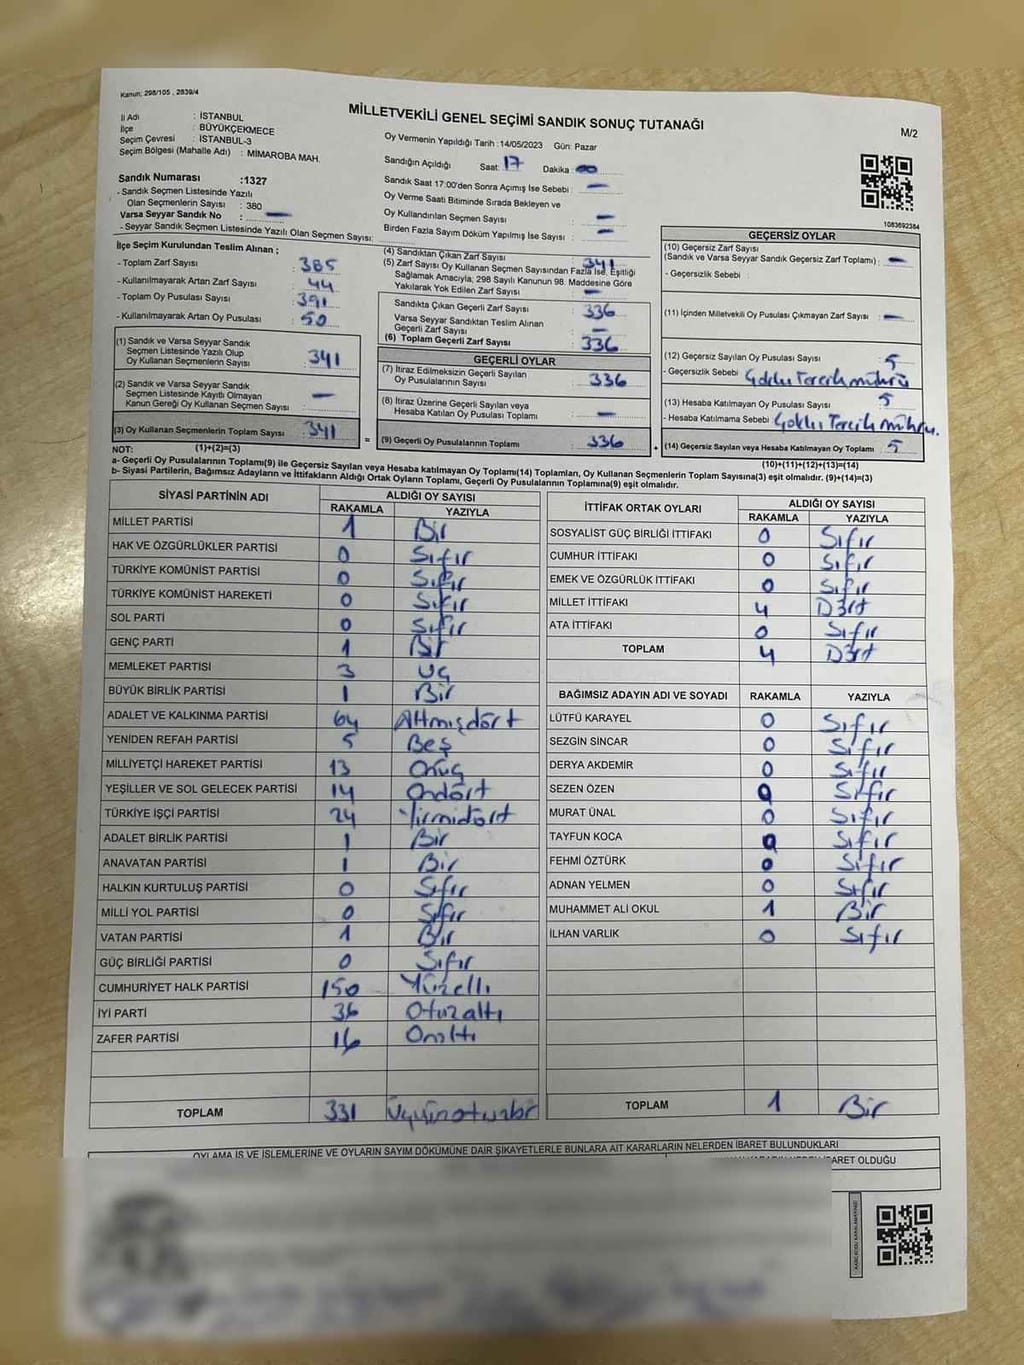 Kanun; 298/105 , 2839/4
MİLLETVEKİLİ GENEL SEÇİMİ SANDIK SONUÇ TUTANAĞI
M/2
İl Adı : İSTANBUL
İlçe : BÜYÜKÇEKMECE
Seçim Çevresi : İSTANBUL-3
Seçim Bölgesi (Mahalle Adı) : MİMAROBA MAH.
Sandık Numarası :1327
- Sandık Seçmen Listesinde Yazılı
Olan Seçmenlerin Sayısı : 380
Varsa Seyyar Sandık No : —
- Seyyar Sandık Seçmen Listesinde Yazılı Olan Seçmen Sayısı:
Oy Vermenin Yapıldığı Tarih :14/05/2023 Gün: Pazar
Sandığın Açıldığı Saat: 17 Dakika: 00
Sandık Saat 17:00'den Sonra Açımış İse Sebebi : —
Oy Verme Saati Bitiminde Sırada Bekleyen ve
Oy Kullandırılan Seçmen Sayısı : —
Birden Fazla Sayım Döküm Yapılmış İse Sayısı : —
1083692384
İlçe Seçim Kurulundan Teslim Alınan ;
- Toplam Zarf Sayısı : 385
- Kullanılmayarak Artan Zarf Sayısı : 44
- Toplam Oy Pusulası Sayısı : 391
- Kullanılmayarak Artan Oy Pusulası : 50
(1) Sandık ve Varsa Seyyar Sandık
Seçmen Listesinde Yazılı Olup
Oy Kullanan Seçmenlerin Sayısı : 341
(2) Sandık ve Varsa Seyyar Sandık
Seçmen Listesinde Kayıtlı Olmayan
Kanun Gereği Oy Kullanan Seçmen Sayısı : —
(3) Oy Kullanan Seçmenlerin Toplam Sayısı : 341
(4) Sandıktan Çıkan Zarf Sayısı : 341
(5) Zarf Sayısı Oy Kullanan Seçmen Sayısından Fazla İse, Eşitliği
Sağlamak Amacıyla; 298 Sayılı Kanunun 98. Maddesine Göre
Yakılarak Yok Edilen Zarf Sayısı : —
Sandıkta Çıkan Geçerli Zarf Sayısı : 336
Varsa Seyyar Sandıktan Teslim Alınan
Geçerli Zarf Sayısı : —
(6) Toplam Geçerli Zarf Sayısı : 336
GEÇERLİ OYLAR
(7) İtiraz Edilmeksizin Geçerli Sayılan
Oy Pusulalarının Sayısı : 336
(8) İtiraz Üzerine Geçerli Sayılan veya
Hesaba Katılan Oy Pusulası Toplamı : —
= (9) Geçerli Oy Pusulalarının Toplamı : 336 +
GEÇERSİZ OYLAR
(10) Geçersiz Zarf Sayısı
(Sandık ve Varsa Seyyar Sandık Geçersiz Zarf Toplamı) : —
- Geçersizlik Sebebi :
(11) İçinden Milletvekili Oy Pusulası Çıkmayan Zarf Sayısı : —
(12) Geçersiz Sayılan Oy Pusulası Sayısı : 5
- Geçersizlik Sebebi : Çoklu Tercih mührü
(13) Hesaba Katılmayan Oy Pusulası Sayısı : 5
- Hesaba Katılmama Sebebi : Çoklu Tercih mührü.
(14) Geçersiz Sayılan veya Hesaba Katılmayan Oy Toplamı : 5
NOT: (1)+(2)=(3)
(10)+(11)+(12)+(13)=(14)
a- Geçerli Oy Pusulalarının Toplamı(9) ile Geçersiz Sayılan veya Hesaba katılmayan Oy Toplamı(14) Toplamları, Oy Kullanan Seçmenlerin Toplam Sayısına(3) eşit olmalıdır. (9)+(14)=(3)
b- Siyasi Partilerin, Bağımsız Adayların ve İttifakların Aldığı Ortak Oyların Toplamı, Geçerli Oy Pusulalarının Toplamına(9) eşit olmalıdır.
SİYASİ PARTİNİN ADI ALDIĞI OY SAYISI
RAKAMLA YAZIYLA
MİLLET PARTİSİ 1 Bir
HAK VE ÖZGÜRLÜKLER PARTİSİ 0 Sıfır
TÜRKİYE KOMÜNİST PARTİSİ 0 Sıfır
TÜRKİYE KOMÜNİST HAREKETİ 0 Sıfır
SOL PARTİ 0 Sıfır
GENÇ PARTİ 1 Bir
MEMLEKET PARTİSİ 3 Üç
BÜYÜK BİRLİK PARTİSİ 1 Bir
ADALET VE KALKINMA PARTİSİ 64 Altmışdört
YENİDEN REFAH PARTİSİ 5 Beş
MİLLİYETÇİ HAREKET PARTİSİ 13 Onüç
YEŞİLLER VE SOL GELECEK PARTİSİ 14 Ondört
TÜRKİYE İŞÇİ PARTİSİ 24 Yirmidört
ADALET BİRLİK PARTİSİ 1 Bir
ANAVATAN PARTİSİ 1 Bir
HALKIN KURTULUŞ PARTİSİ 0 Sıfır
MİLLİ YOL PARTİSİ 0 Sıfır
VATAN PARTİSİ 1 Bir
GÜÇ BİRLİĞİ PARTİSİ 0 Sıfır
CUMHURİYET HALK PARTİSİ 150 Yüzelli
İYİ PARTİ 36 Otuzaltı
ZAFER PARTİSİ 16 Onaltı
TOPLAM 331 Üçyüzotuzbir
İTTİFAK ORTAK OYLARI ALDIĞI OY SAYISI
RAKAMLA YAZIYLA
SOSYALİST GÜÇ BİRLİĞİ İTTİFAKI 0 Sıfır
CUMHUR İTTİFAKI 0 Sıfır
EMEK VE ÖZGÜRLÜK İTTİFAKI 0 Sıfır
MİLLET İTTİFAKI 4 Dört
ATA İTTİFAKI 0 Sıfır
TOPLAM 4 Dört
BAĞIMSIZ ADAYIN ADI VE SOYADI RAKAMLA YAZIYLA
LÜTFÜ KARAYEL 0 Sıfır
SEZGİN SİNCAR 0 Sıfır
DERYA AKDEMİR 0 Sıfır
SEZEN ÖZEN 0 Sıfır
MURAT ÜNAL 0 Sıfır
TAYFUN KOCA 0 Sıfır
FEHMİ ÖZTÜRK 0 Sıfır
ADNAN YELMEN 0 Sıfır
MUHAMMET ALİ OKUL 1 Bir
İLHAN VARLIK 0 Sıfır
TOPLAM 1 Bir
OYLAMA İŞ VE İŞLEMLERİNE VE OYLARIN SAYIM DÖKÜMÜNE DAİR ŞİKAYETLERLE BUNLARA AİT KARARLARIN NELERDEN İBARET BULUNDUKLARI
İBARET OLDUĞU